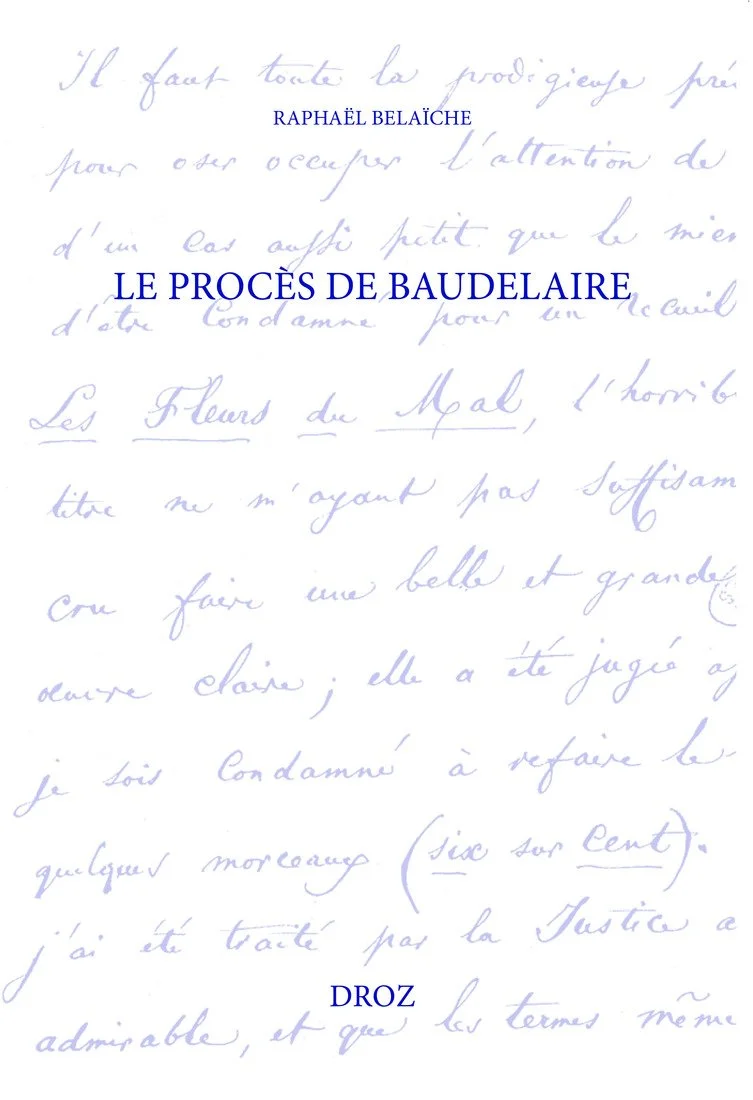 Il faut toute la prodigieuse pré
RAPHAËL BELAÏCHE
pour oser occuper l'attention de
d'un cas aussi petit que le mien
LE PROCÈS DE BAUDELAIRE
d'être condamné pour un recueil
Les Fleurs du Mal, l'horrib
titre ne m'ayant pas suffisam
cru faire une belle et grande
œuvre claire ; elle a été jugée
je sois condamné à refaire le
quelques morceaux (six sur cent).
j'ai été traité par la Justice a
DROZ
admirable, et que les termes même